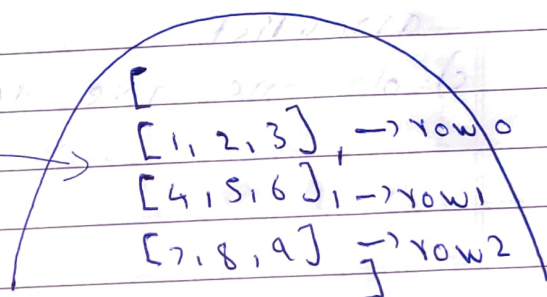 [
[1, 2, 3], -> row 0
[4, 5, 6], -> row 1
[7, 8, 9] -> row 2
]